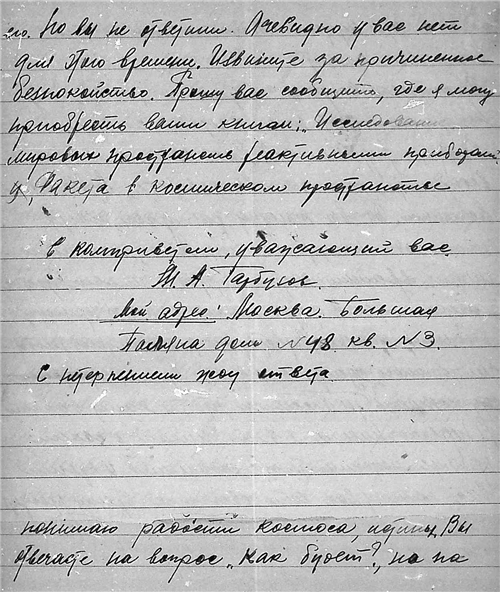 его. Но вы не ответили. Очевидно у вас нет
для этого времени. Извините за причиненное
безпокойство. Прошу вас сообщить, где я могу
приобресть ваши книги: „Исследование
мировых пространств реактивными приборами"
и „Ракета в космическом пространстве
С комприветом, уважающий вас.
А. Гарбузов.
Мой адрес: Москва. Большая
Поляна дом №48 кв. №3.
С нетерпением жду ответа.
понимаю радости космоса, Вы
отвечаете на вопрос „как будет?„ но на